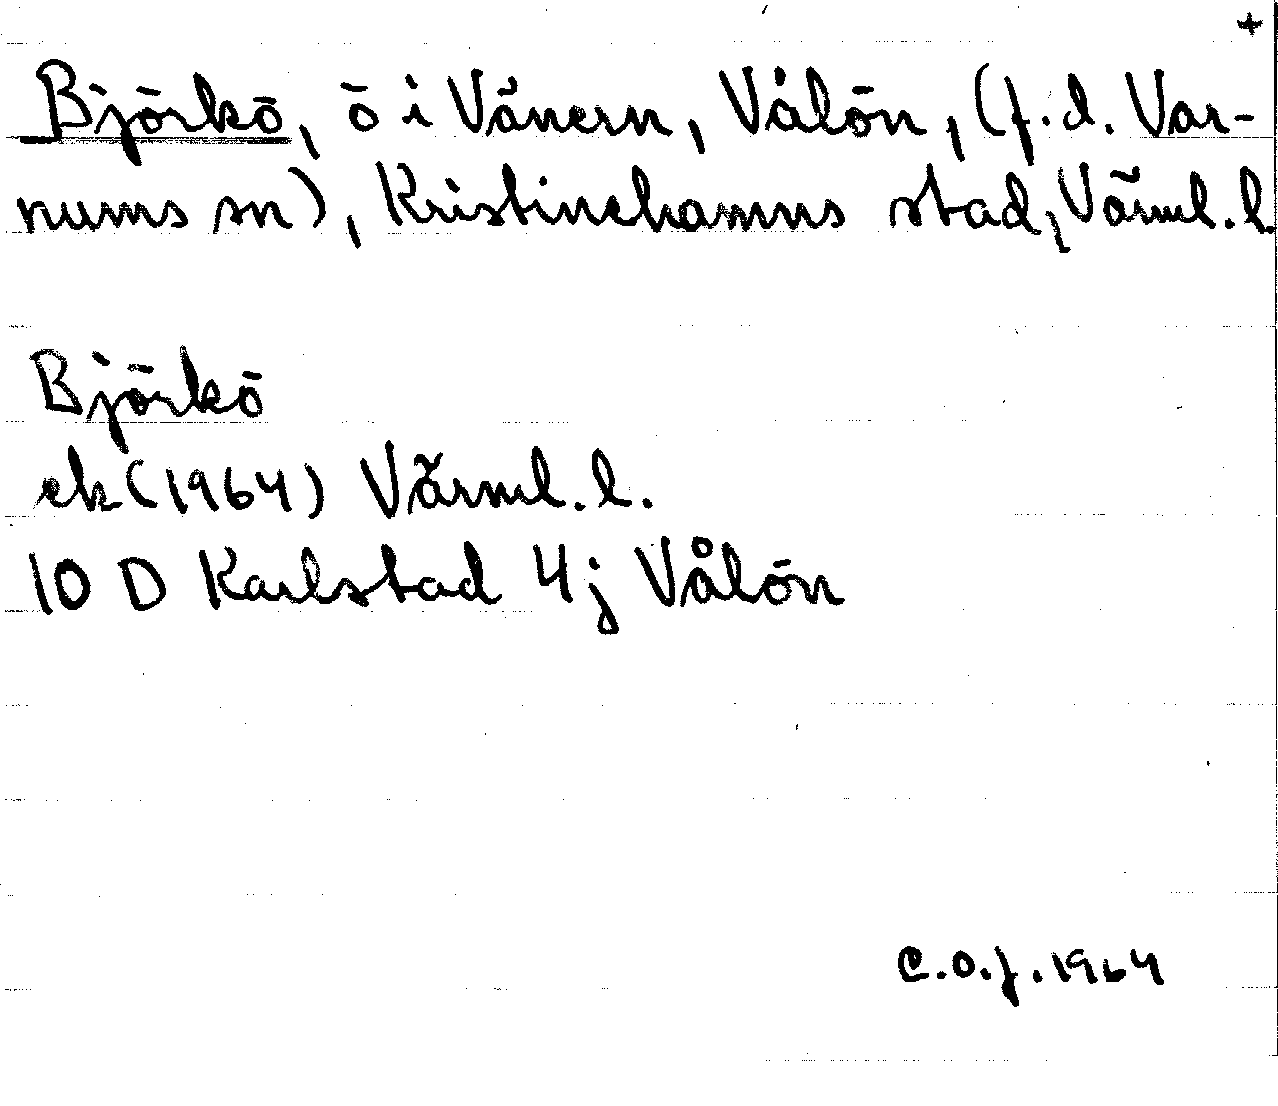 +
Björkö, ö i Vänern, Vålön, (f.d. Var-
nums sn), Kristinehamns stad, Värml. l.
Björkö
ek (1964) Värml. l.
10 D Karlstad 4j Vålön
C.O.f. 1964